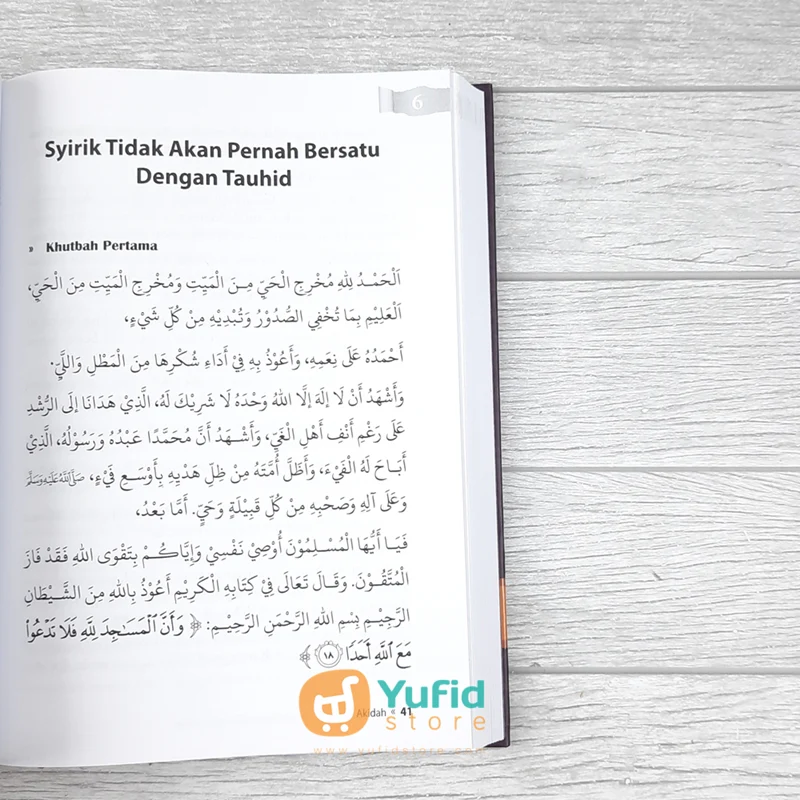 6
Syirik Tidak Akan Pernah Bersatu
Dengan Tauhid
» Khutbah Pertama
اَلْحَمْدُ لِلّٰهِ مُخْرِجِ الْحَيِّ مِنَ الْمَيِّتِ وَمُخْرِجِ الْمَيِّتِ مِنَ الْحَيِّ،
اَلْعَلِيْمِ بِمَا تُخْفِي الصُّدُوْرُ وَتُبْدِيْهِ مِنْ كُلِّ شَيْءٍ،
أَحْمَدُهُ عَلَى نِعَمِهِ، وَأَعُوْذُ بِهِ فِيْ أَدَاءِ شُكْرِهَا مِنَ الْمَطْلِ وَاللَّيِّ.
وَأَشْهَدُ أَنْ لَا إِلَهَ إِلَّا اللهُ وَحْدَهُ لَا شَرِيْكَ لَهُ، الَّذِيْ هَدَانَا إِلَى الرُّشْدِ
عَلَى رَغْمِ أَنْفِ أَهْلِ الْغَيِّ، وَأَشْهَدُ أَنَّ مُحَمَّدًا عَبْدُهُ وَرَسُوْلُهُ، الَّذِيْ
أَبَاحَ لَهُ الْفَيْءَ، وَأَظَلَّ أُمَّتَهُ مِنْ ظِلِّ هَدْيِهِ بِأَوْسَعِ فَيْءٍ، ﷺ
وَعَلَى آلِهِ وَصَحْبِهِ مِنْ كُلِّ قَبِيْلَةٍ وَحَيٍّ. أَمَّا بَعْدُ،
فَيَا أَيُّهَا الْمُسْلِمُوْنَ أُوْصِيْ نَفْسِيْ وَإِيَّاكُمْ بِتَقْوَى اللهِ فَقَدْ فَازَ
الْمُتَّقُوْنَ. وَقَالَ تَعَالَى فِيْ كِتَابِهِ الْكَرِيْمِ أَعُوْذُ بِاللهِ مِنَ الشَّيْطَانِ
الرَّجِيْمِ بِسْمِ اللهِ الرَّحْمَنِ الرَّحِيْمِ: ﴿ وَأَنَّ ٱلْمَسَٰجِدَ لِلَّهِ فَلَا تَدْعُوا۟
مَعَ ٱللَّهِ أَحَدًا ١٨ ﴾
Akidah « 41
Yufid
store
www.yufidstore.com